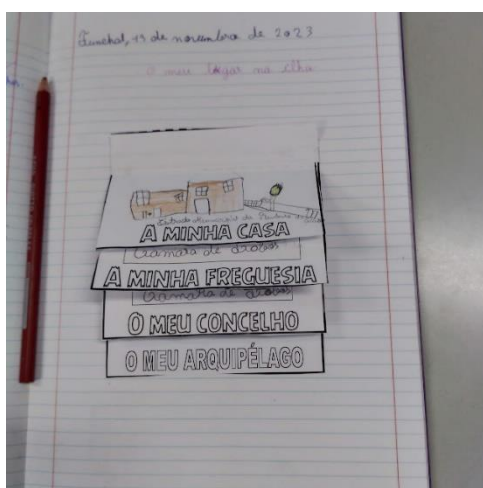 Funchal, 13 de novembro de 2023
O meu lugar na ilha
Estrada Municipal do
A MINHA CASA
Câmara de Lobos
A MINHA FREGUESIA
Câmara de Lobos
O MEU CONCELHO
O MEU ARQUIPÉLAGO